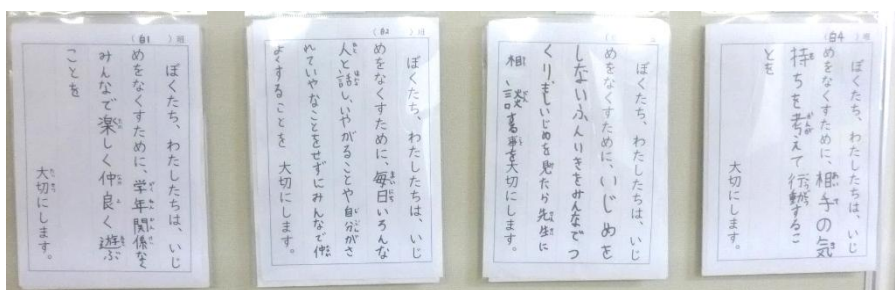 （白1）班
ぼくたち、わたしたちは、いじ
めをなくすために、学年関係なく
みんなで楽しく仲良く遊ぶ
ことを
大切にします。
（白2）班
ぼくたち、わたしたちは、いじ
めをなくすために、毎日いろんな
人と話し、いやがることや自分がさ
れていやなことをせずにみんなで仲
よくすることを 大切にします。
（ ）班
ぼくたち、わたしたちは、いじ
めをなくすために、いじめを
しないふんいきをみんなでつ
くり、もしいじめを見たら先生に
相談する事を大切にします。
（白4）班
ぼくたち、わたしたちは、いじ
めをなくすために、相手の気
持ちを考えて行動するこ
とを
大切にします。